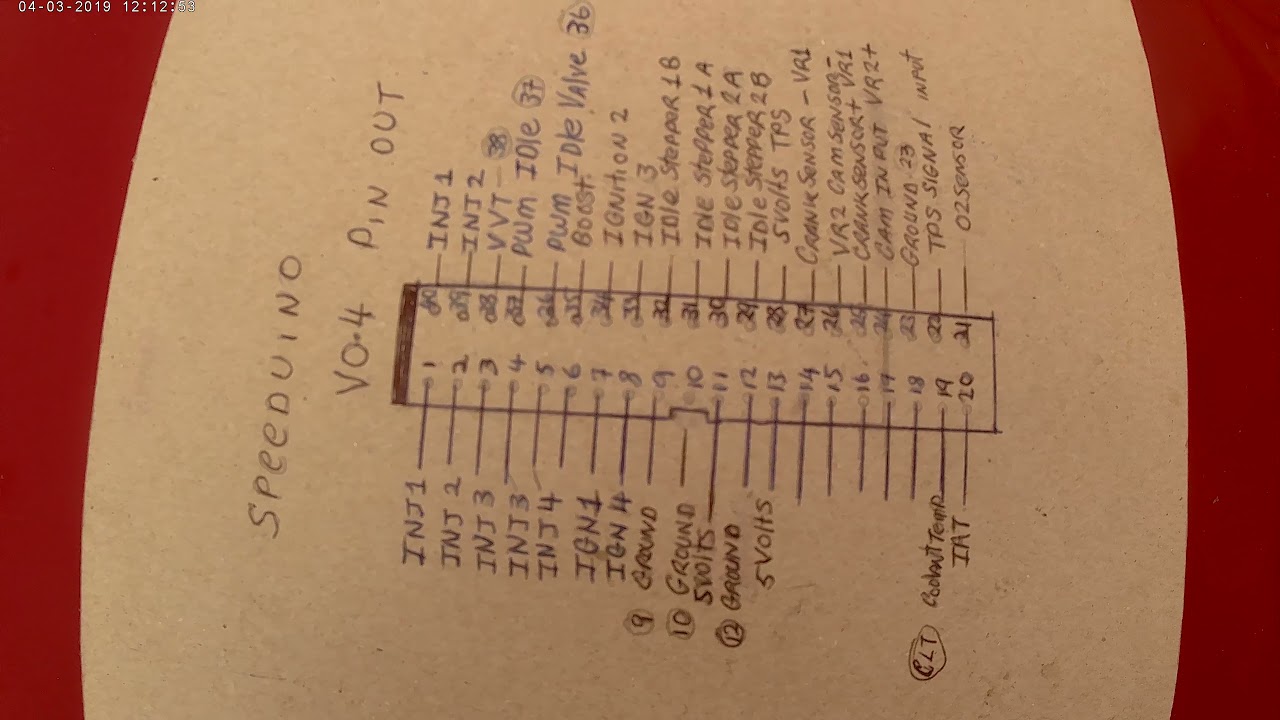 04-03-2019 12:12:53
SPEEDUINO
V0.4 PIN OUT
INJ1 1 40 INJ1
INJ 2 2 39 INJ2
INJ 3 3 38 VVT 38
INJ3 4 37 PWM IDle 37
INJ 4 5 36 PWM IDle Valve 36
6 35 Boost
IGN1 7 34 IGNition 2
IGN 4 8 33 IGN 3
9 GROUND 9 32 IDle StePPER 1B
10 GROUND 10 31 IDle StePPER 1A
5VOLTS 11 30 IDle StePPER 2A
12 GROUND 12 29 IDle StePPER 2B
5VOLTS 13 28 5Volts TPS
14 27 CRANKSENSOR - VR1
15 26 VR2 CAM SENSOR-
16 25 CRANKSENSOR+ VR1
17 24 CAM INPUT VR2+
18 23 GROUND 23
CLT Coolant Temp 19 22 TPS SIGNAl INPUT
IAT 20 21 O2SENSOR